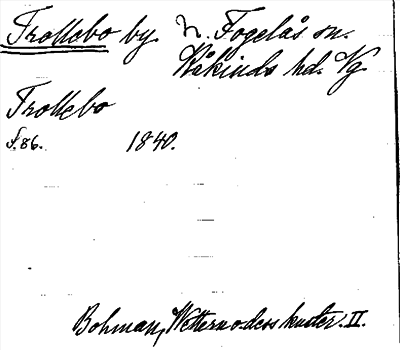 Trollebo by. N. Fogelås sn.
Kåkinds hd. Vg.
Trollebo
s. 86. 1840.
Bohman, Wettern o. dess kuster. II.